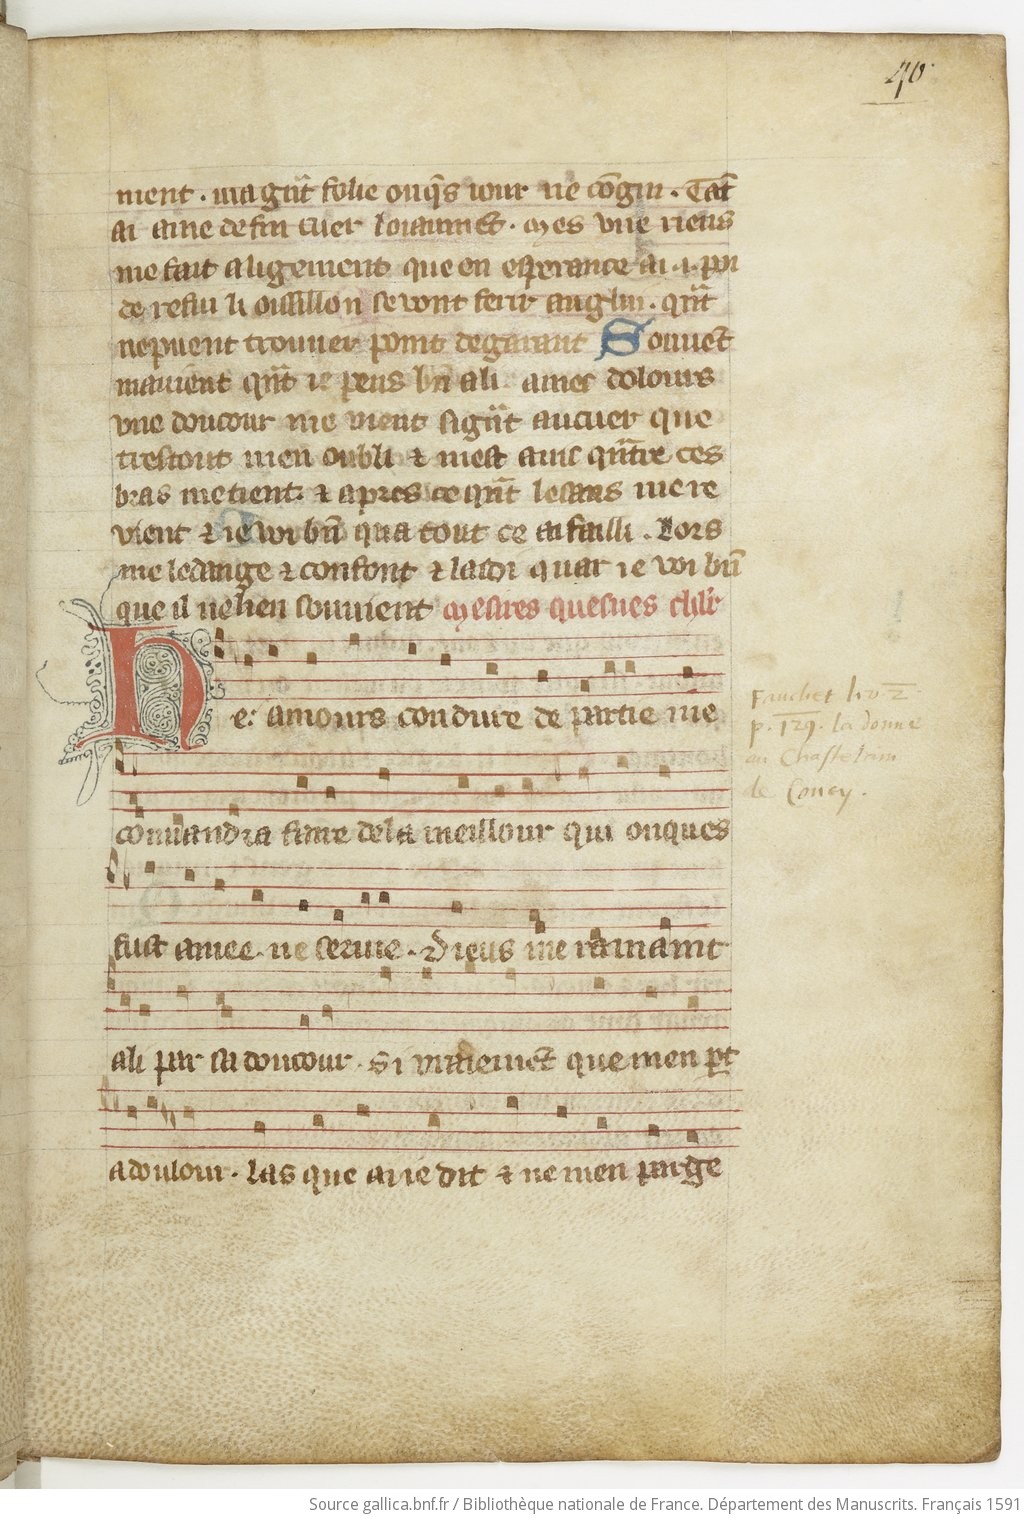 40
ment . ma gñt folie onq̃s iour ne cõgui . Tãt
ai ame de fin cuer loiaumẽt . Mes vne riens
me fait aligement que en esperance ai .i. poi
de refui li oisillon se vont ferir au glui . qñt
ne pueent trouuer point de garant Souuẽt
mauient qñt ie pens bñ a li . ames dolours
vne doucour me vient si gñt au cuer que
trestout men oubli & mest auis quẽtre ces
bras me tient . & apres ce qñt le sans me re
vient & ie voi bñ qua tout ce ai failli . Lors
me ledange & confont & laidi quar ie voi bñ
que il ne lien souuient Mesires quesnes chlr̃
He: amours con dure de partie me
conuiandra faire de la meillour qui onques
fust amee . ne seruie . Dieus me ramaint
a li par sa doucour . Si vraiemẽt que men p̃t
a doulour . Las que ai ie dit & ne men parge
Fauchet liv. 2
p. 129. la donne
au Chastelain
de Coucy .
Source gallica.bnf.fr / Bibliothèque nationale de France. Département des Manuscrits. Français 1591